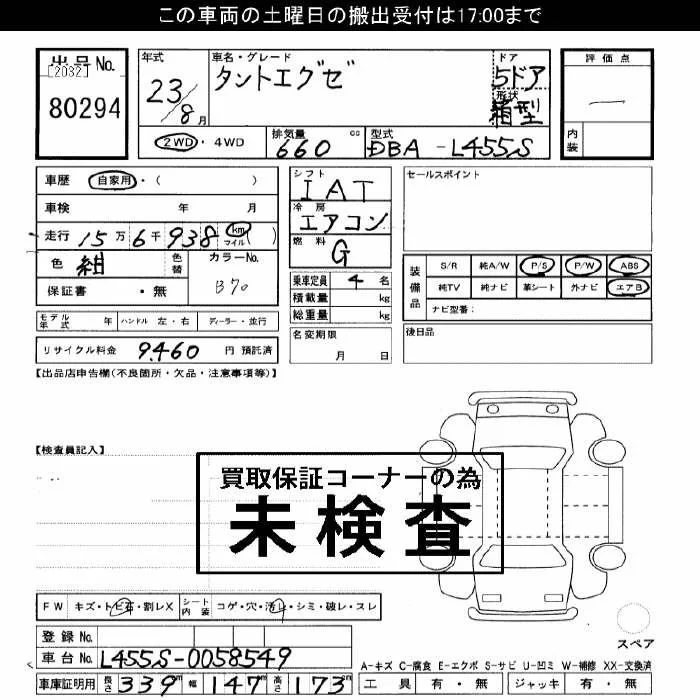 この車両の土曜日の搬出受付は17:00まで
出品No. [2032] 80294
年式 23/8月
車名・グレード タントエグゼ
ドア 5ドア
形状 箱型
評価点 —
内装
2WD・4WD
排気量 660 cc
型式 DBA-L455S
車歴 自家用・( )
車検 年 月
走行 15万6千938 km マイル ( )
色 紺 色替 カラーNo. B70
保証書 ・無
シフト IAT
冷房 エアコン
燃料 G
乗車定員 4名
積載量 kg
総重量 kg
セールスポイント
装備品 S/R 純A/W P/S P/W ABS
純TV 純ナビ 革シート 外ナビ エアB
ナビ型番:
モデル年式 年 ハンドル 左・右 ディーラー・並行
名変期限 月 日
後日品
リサイクル料金 9460 円 預託済
【出品店申告欄(不良箇所・欠品・注意事項等)】
【検査員記入】
買取保証コーナーの為
未検査
FW キズ・トビ石・割レX シート内装 コゲ・穴・汚レ・シミ・破レ・スレ
スペア
登録No.
車台No. L455S-0058549
A-キズ C-腐食 E-エクボ S-サビ U-凹ミ W-補修 XX-交換済
車庫証明用 長さ 339m 幅 147m 高さ 173cm
工具 有・無 ジャッキ 有・無